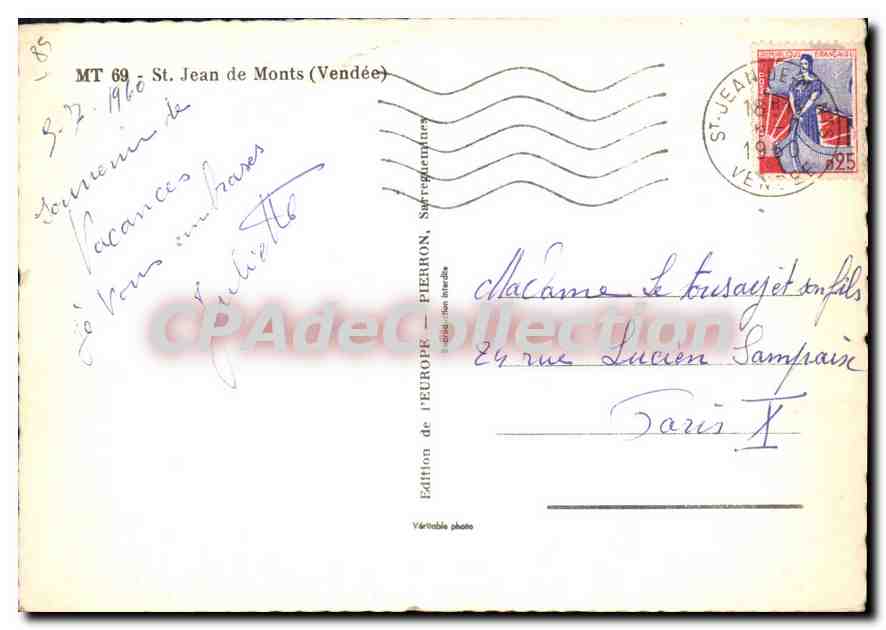 - 85
MT 69 - St. Jean de Monts (Vendée)
9-7-1960
Souvenir de
Vacances
je vous embrasses
Juliette
Edition de l'EUROPE — PIERRON, Sarreguemines
Reproduction interdite
Véritable photo
REPUBLIQUE FRANÇAISE
0,25
ST-JEAN-DE-
18
1960
VENDEE
Madame Le Tousay et son fils
24 rue Lucien Sampaix
Paris X
CPAdeCollection